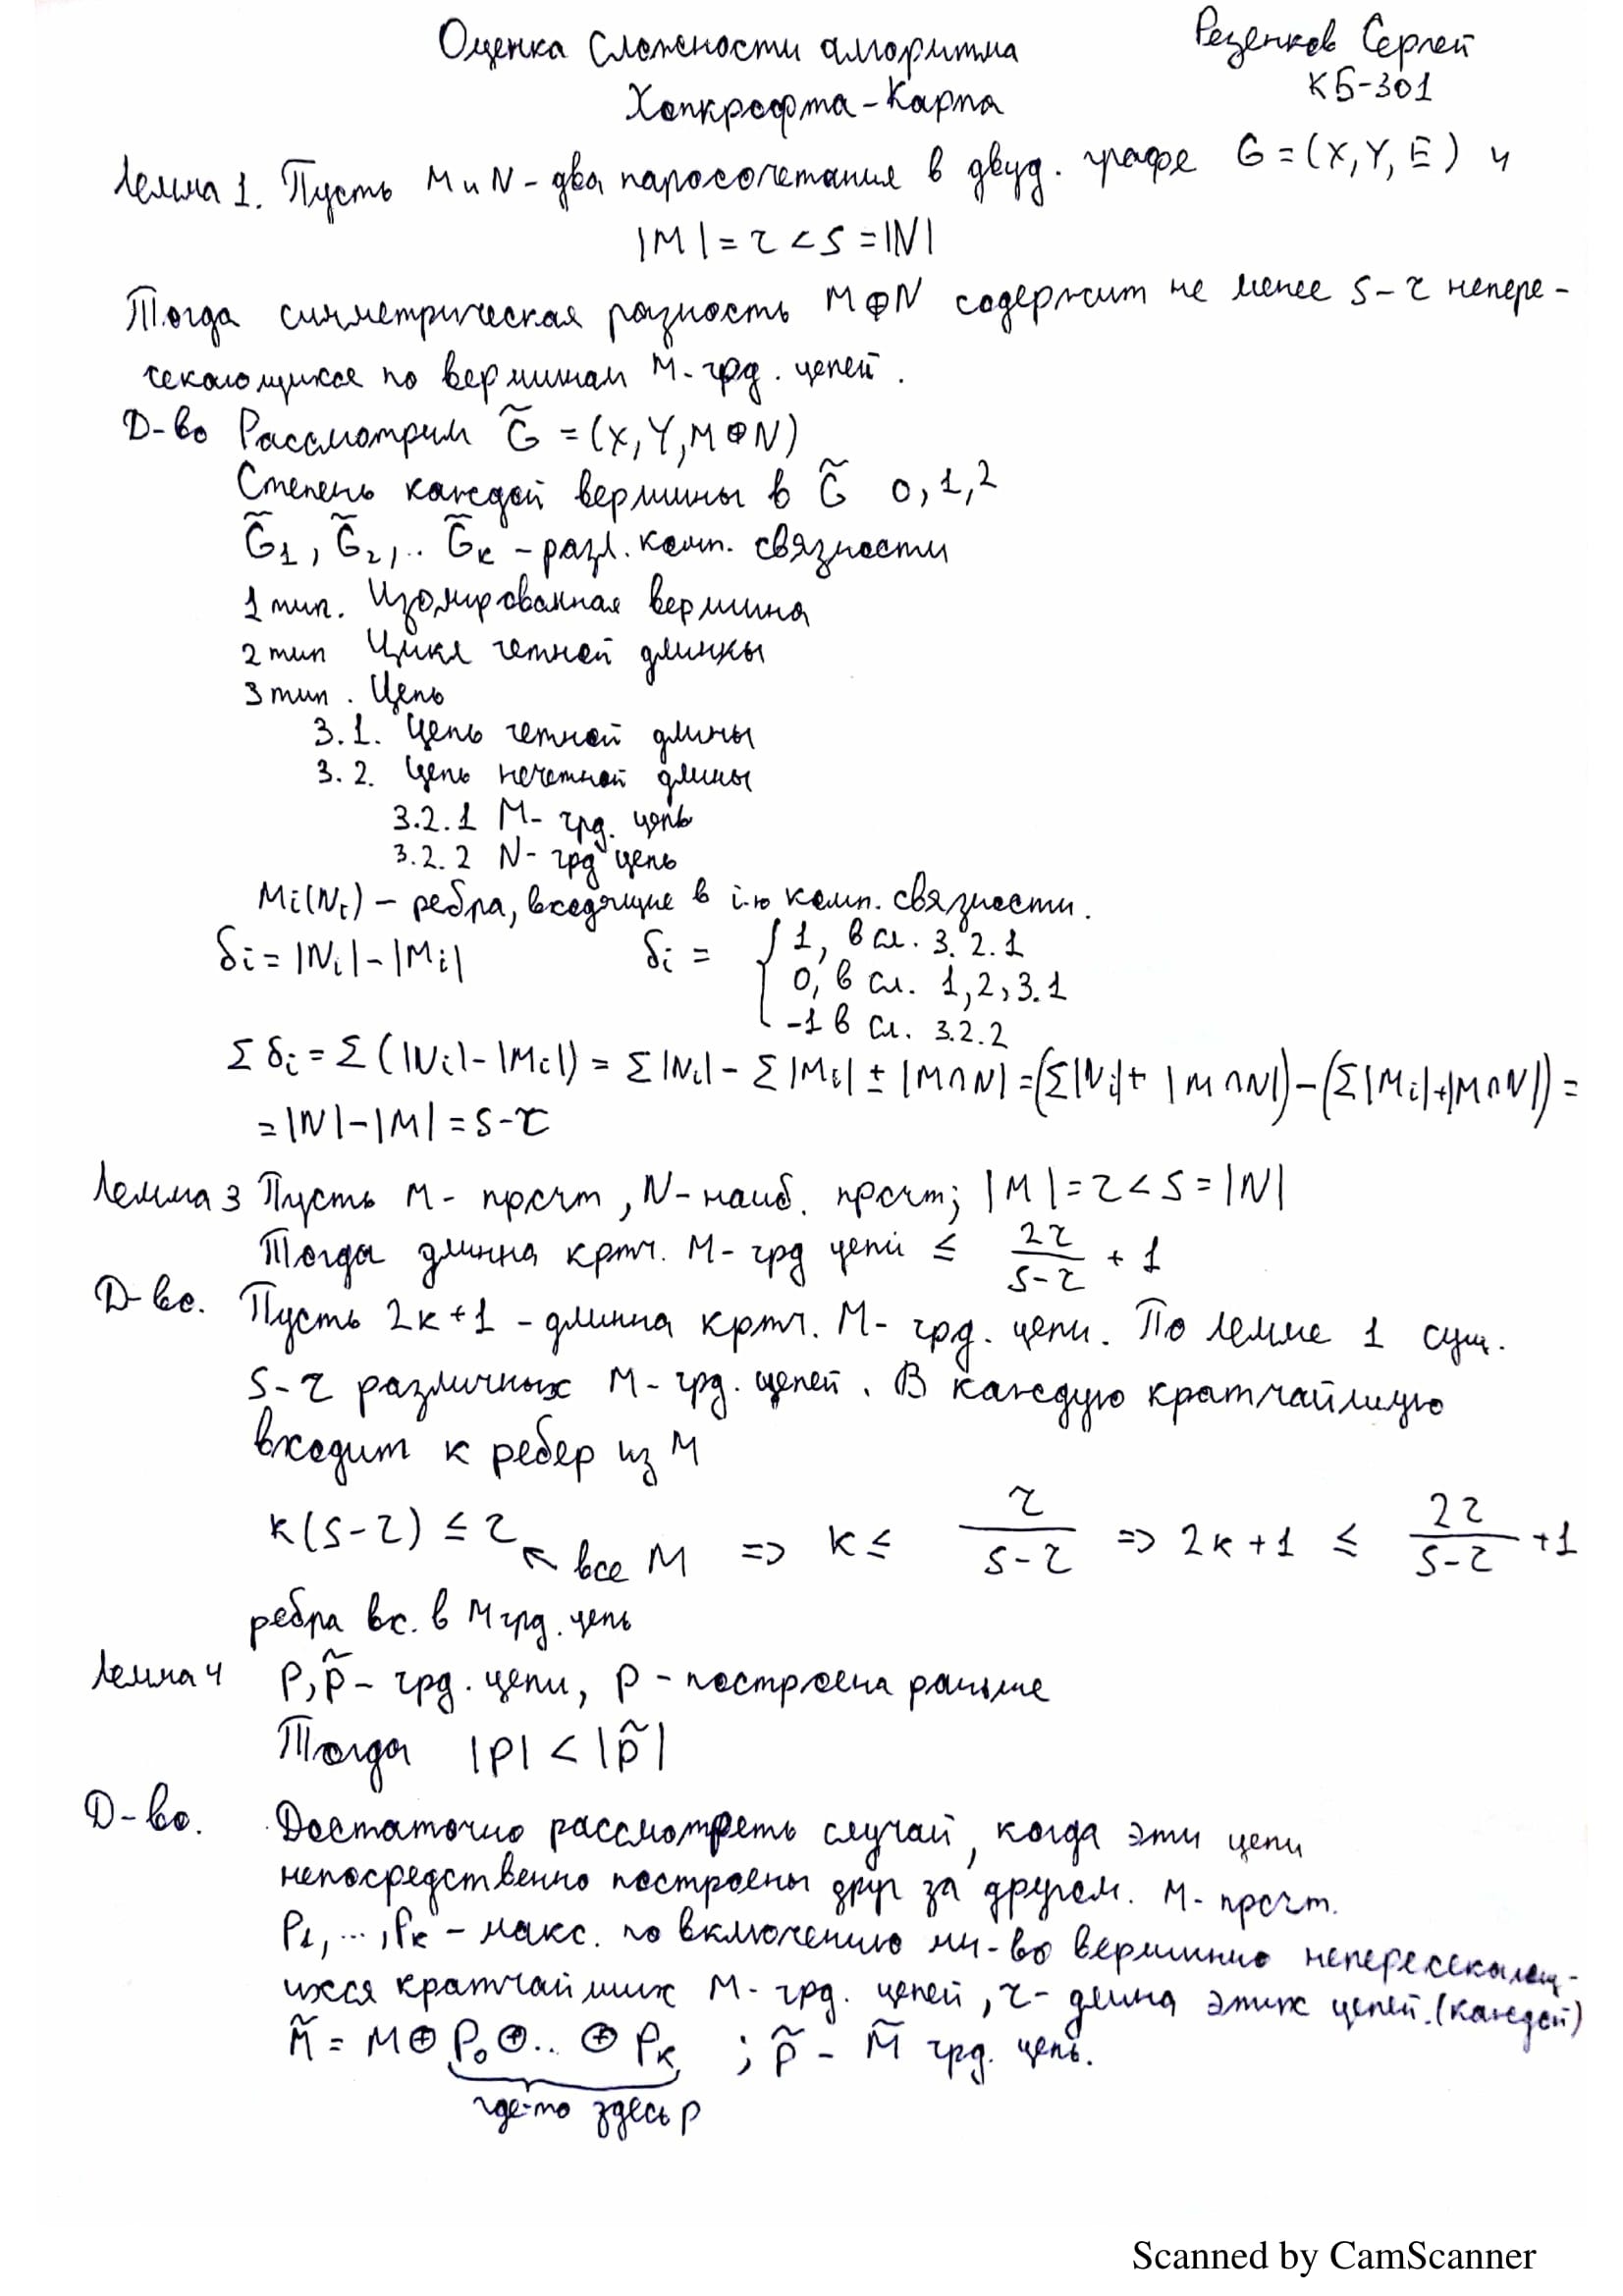 Оценка сложности алгоритма
Хопкрофта-Карпа
Резенков Сергей
КБ-301
Лемма 1. Пусть M и N - два паросочетания в двуд. графе G = (X, Y, E) и
|M| = r < s = |N|
Тогда симметрическая разность M⊕N содержит не менее s-r непере-
секающихся по вершинам M-грд. цепей.
Д-во Рассмотрим G̃ = (X, Y, M⊕N)
Степень каждой вершины в G̃ 0, 1, 2
G̃₁, G̃₂, .. G̃ₖ - разл. комп. связности
1 тип. Изолированная вершина
2 тип Цикл четной длинны
3 тип. Цепь
3.1. Цепь четной длины
3.2. Цепь нечетной длины
3.2.1 M- грд. цепь
3.2.2 N- грд цепь
Mi(Ni) - ребра, входящие в i-ю комп. связности.
δi = |Ni| - |Mi| δi = { 1, в сл. 3.2.1
0, в сл. 1, 2, 3.1
-1 в сл. 3.2.2
Σ δi = Σ (|Ni| - |Mi|) = Σ|Ni| - Σ|Mi| ± |M∩N| = (Σ|Ni| + |M∩N|) - (Σ|Mi| + |M∩N|) =
= |N| - |M| = s-r
Лемма 3 Пусть M - прсчт, N - наиб. прсчт; |M| = r < s = |N|
Тогда длинна кртч. M- грд цепи ≤ 2r/(s-r) + 1
Д-во. Пусть 2к+1 - длинна кртч. M- грд. цепи. По лемме 1 сущ.
s-r различных M- грд. цепей. В каждую кратчайшую
входит к ребер из M
к(s-r) ≤ r ↖ все M => к ≤ r/(s-r) => 2к+1 ≤ 2r/(s-r) + 1
ребра вх. в M грд. цепь
Лемма 4 P, P̃ - грд. цепи, P - построена раньше
Тогда |P| < |P̃|
Д-во. Достаточно рассмотреть случай, когда эти цепи
непосредственно построены друг за другом. M - прсчт.
P₁, ..., Pₖ - макс. по включению мн-во вершинно непересекающ-
ихся кратчайших M- грд. цепей, r - длина этих цепей. (каждой)
M̃ = M ⊕ P₀ ⊕ .. ⊕ Pₖ ; P̃ - M̃ грд. цепь.
где-то здесь P
Scanned by CamScanner